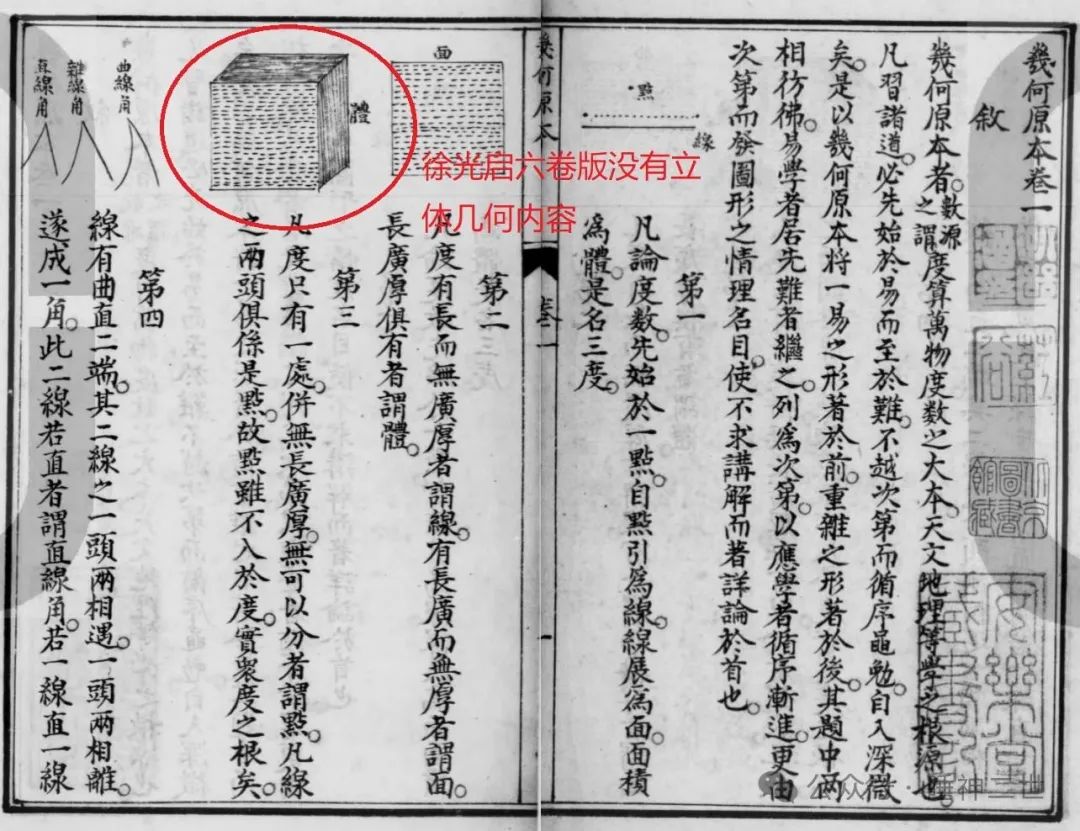 幾何原本卷一
敘
幾何原本者。數源之謂。度算萬物度數之大本。天文地理等學之根源也。
凡習諸道。必先始於易而至於難。不越次第而循序黽勉。自入深微
矣。是以幾何原本將一易之形著於前。重雜之形著於後。其題中兩
相彷彿。易學者居先難者繼之。列為次第。以應學者循序漸進。更由
次第而發圖形之情理名目。使不求講解而著詳論於首也。
點
線
第一
凡論度數。先始於一點。自點引為線。線展為面。面積
為體。是名三度。
幾何原本
卷一
一
面
體
徐光启六卷版没有立
体几何内容
第二
凡度有長而無廣厚者謂線。有長廣而無厚者謂面。
長廣厚俱有者謂體。
第三
凡度只有一處。併無長廣厚。無可以分者謂點。凡線
之兩頭俱係是點。故點雖不入於度。實眾度之根矣。
曲線角
雜線角
直線角
第四
線有曲直二端。其二線之一頭兩相遇。一頭兩相離。
遂成一角。此二線若直者謂直線角。若一線直一線